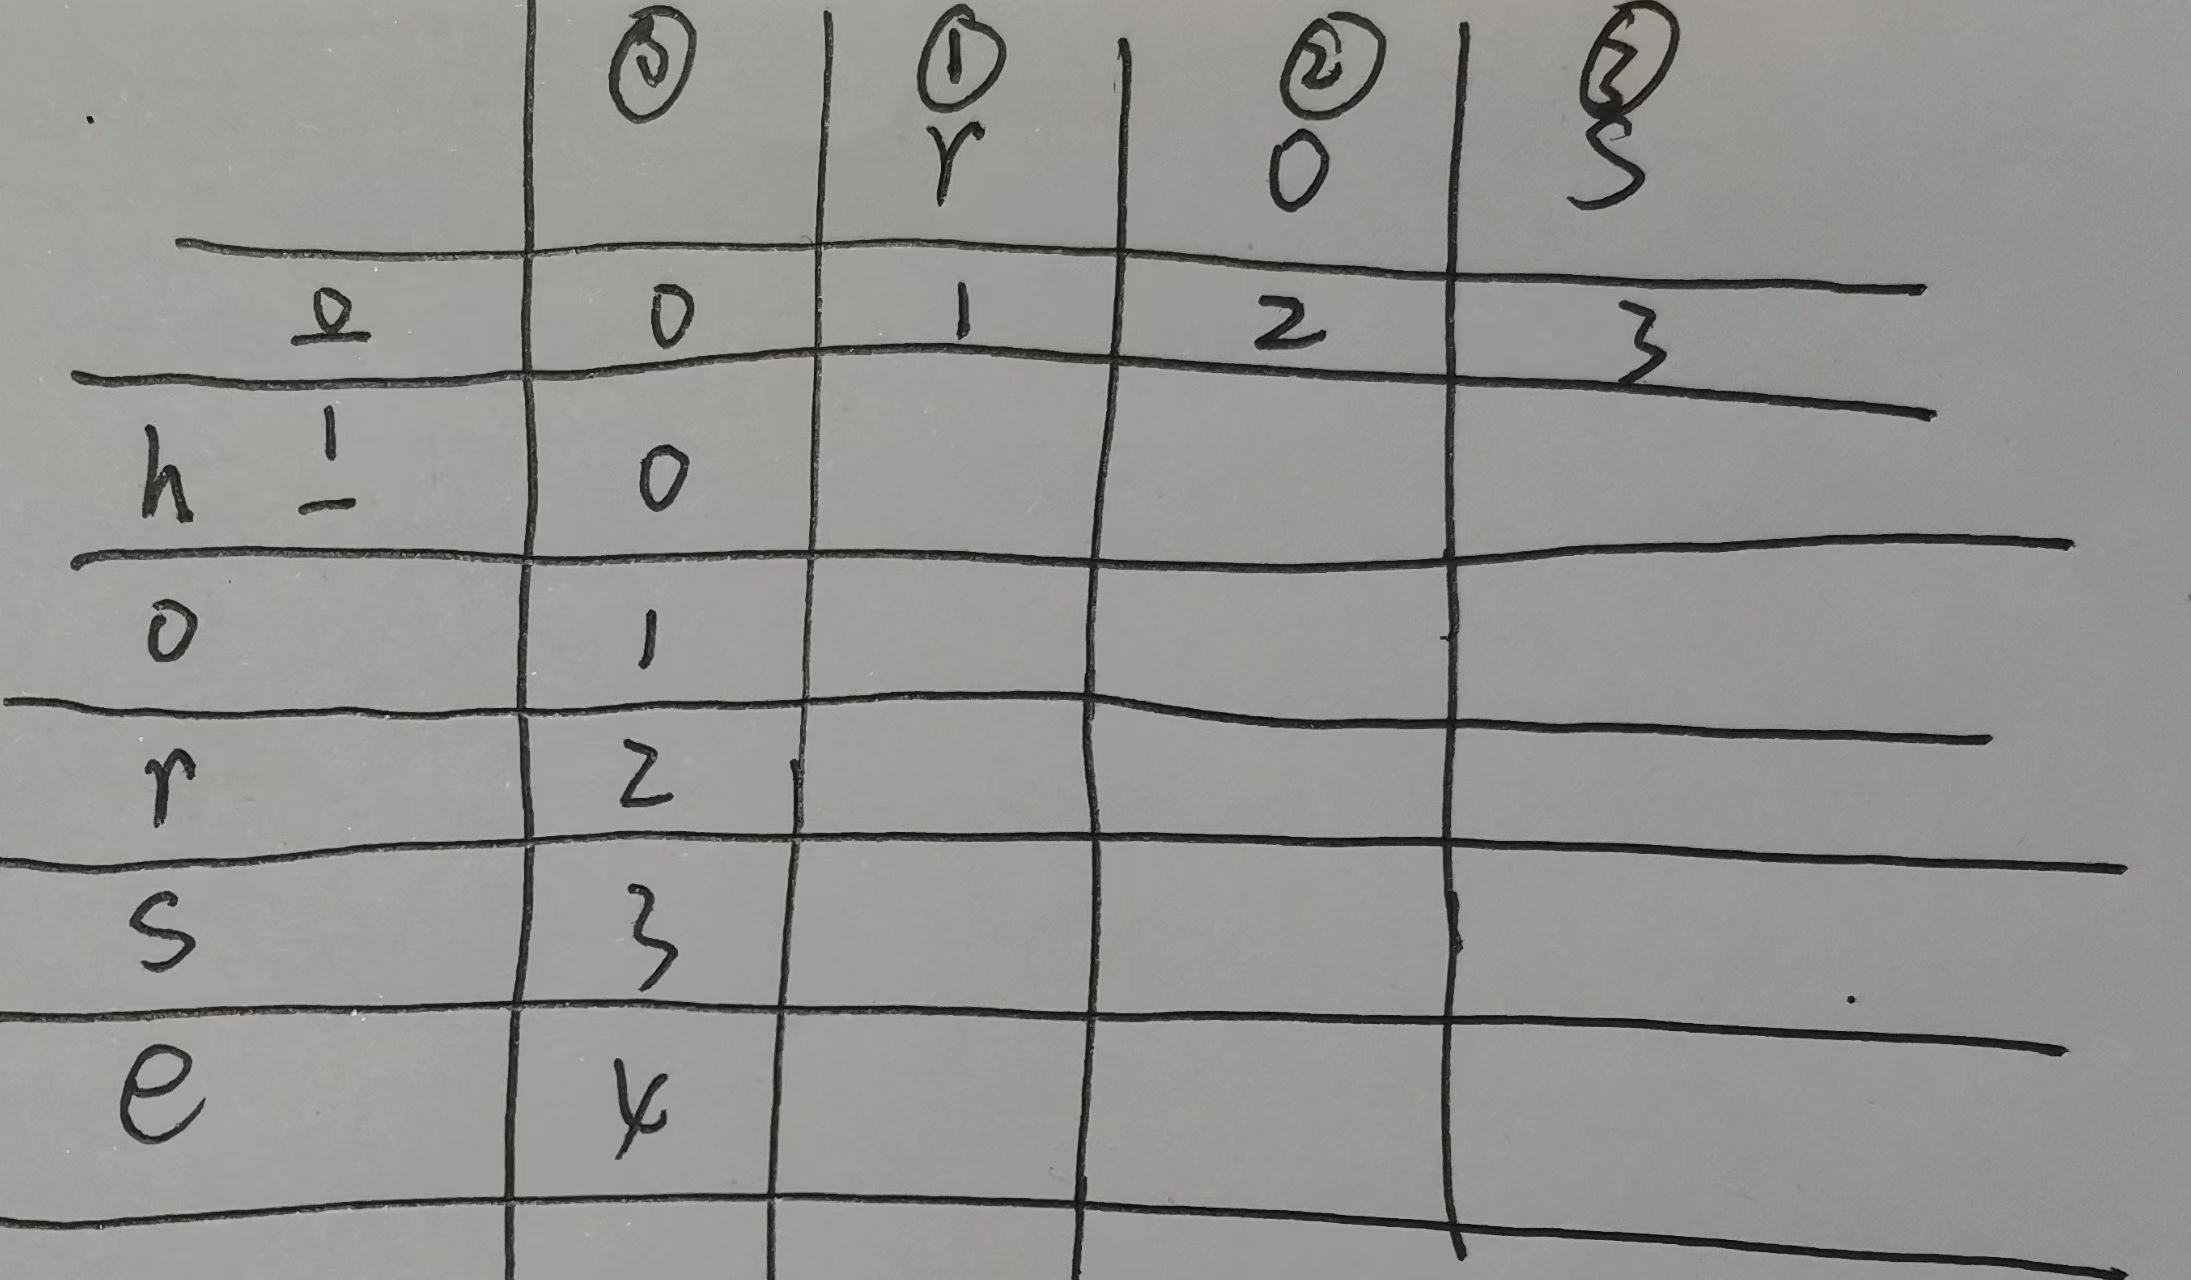 ⓪ ① ② ③
r o s
0 0 1 2 3
h 1 0
o 1
r 2
s 3
e 4